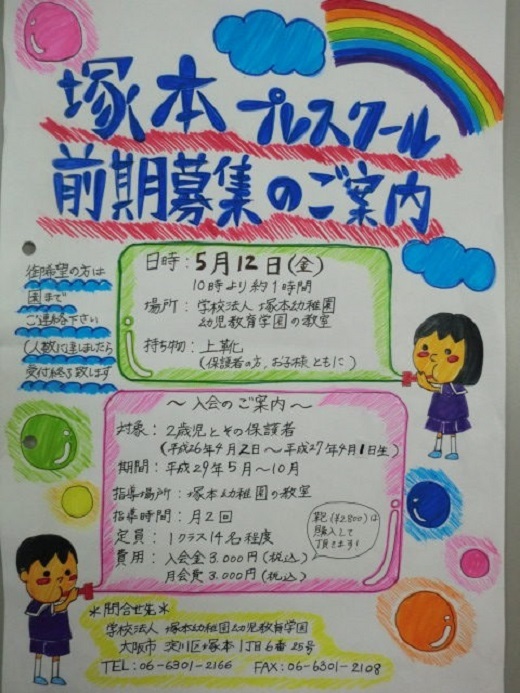 塚本プレスクール
前期募集のご案内
御希望の方は
園まで
ご連絡下さい
(人数に達しましたら
受付終了致します
日時：5月12日(金)
10時より約1時間
場所：学校法人 塚本幼稚園
幼児教育学園の教室
持ち物：上靴
(保護者の方、お子様ともに)
～入会のご案内～
対象：2歳児とその保護者
(平成26年4月2日～平成27年4月1日生)
期間：平成29年5月～10月
指導場所：塚本幼稚園の教室
指導時間：月2回
定員：1クラス14名程度
費用：入会金3.000円(税込)
月会費3.000円(税込)
靴(¥2.800)は
購入して
頂きます
*問合せ先*
学校法人 塚本幼稚園幼児教育学園
大阪市 淀川区塚本1丁目6番25号
TEL:06-6301-2166 FAX:06-6301-2108